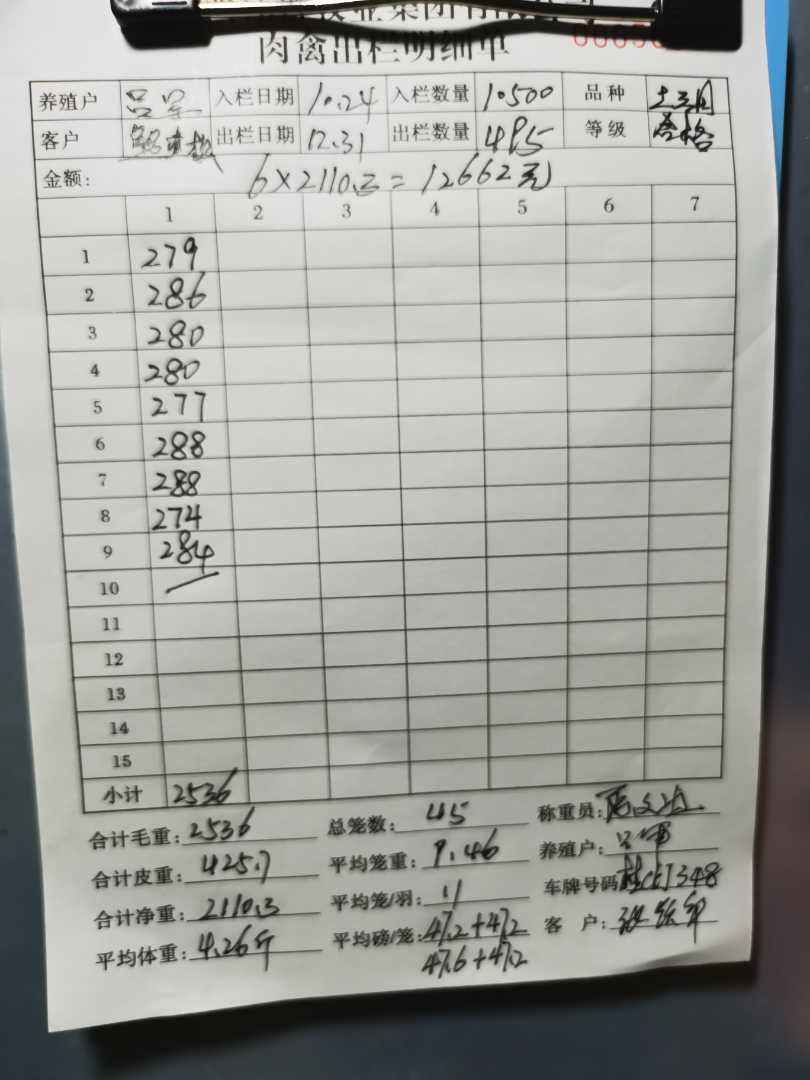 肉禽出栏明细单
养殖户 吕军 入栏日期 10.24 入栏数量 10500 品种
客户 出栏日期 12.31 出栏数量 495 等级 合格
金额: 6×2110.3=12662元
1 2 3 4 5 6 7
1 279
2 286
3 280
4 280
5 277
6 288
7 288
8 274
9 284
10
11
12
13
14
15
小计 2536
合计毛重: 2536 总笼数: 45 称重员:
合计皮重: 425.7 平均笼重: 9.46 养殖户: 吕军
合计净重: 2110.3 平均笼/羽: 11 车牌号码
平均体重: 4.26斤 平均磅/笼: 47.2+47.2 客 户:
47.6+47.2